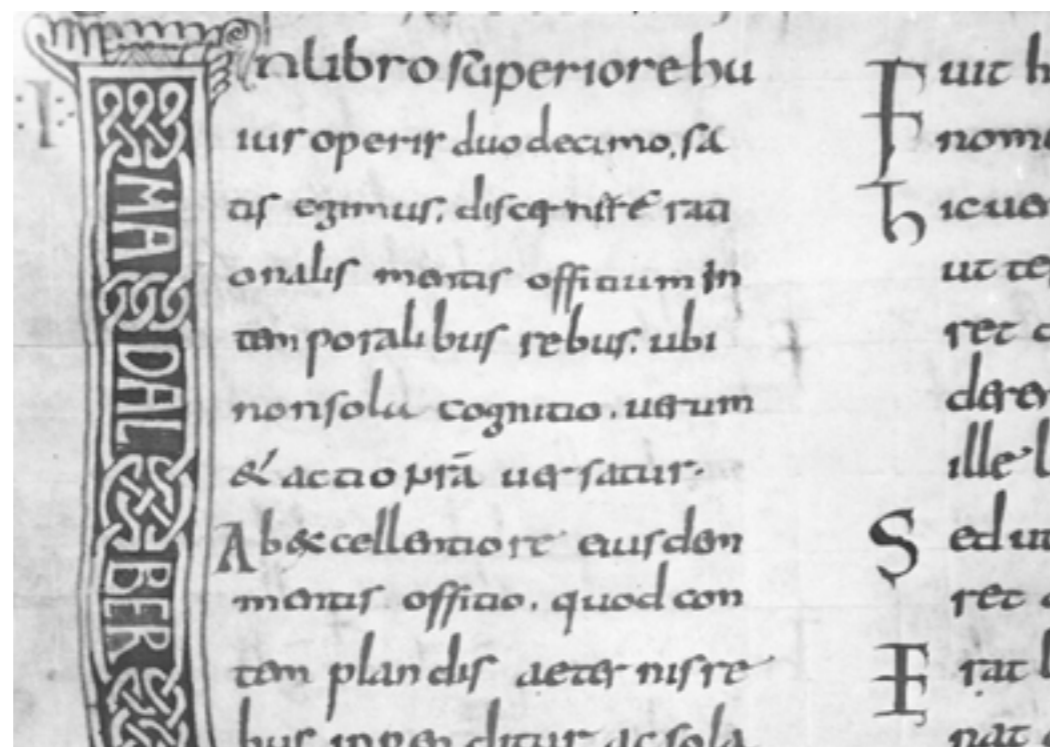 In libro superiore hu
ius operis duodecimo, sa
tis egimus, discernere rati
onalis mentis officium in
temporalibus rebus, ubi
non sola cognitio, uerum
& actio nrā uersatur.
Ab excellentiore eiusdem
mentis officio, quod con
templandis aeternis re
bus inpenditur ac sola
MA
DAL
BER
uit h
nom
hic uer
ut te
ret c
deren
ille l
Sed ut
ret
Erat
nat